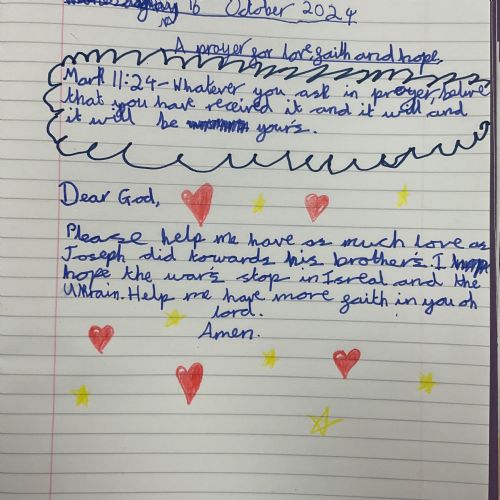 Wednesday 16 October 2024
A prayer for love faith and hope.
Mark 11:24-Whatever you ask in prayer, belive
that you have received it and it will and
it will be your's.
Dear God,
Please help me have as much love as
Joseph did towards his brother's. I
hope the war's stop in Isreal and the
Ukrain. Help me have more faith in you oh
lord.
Amen.